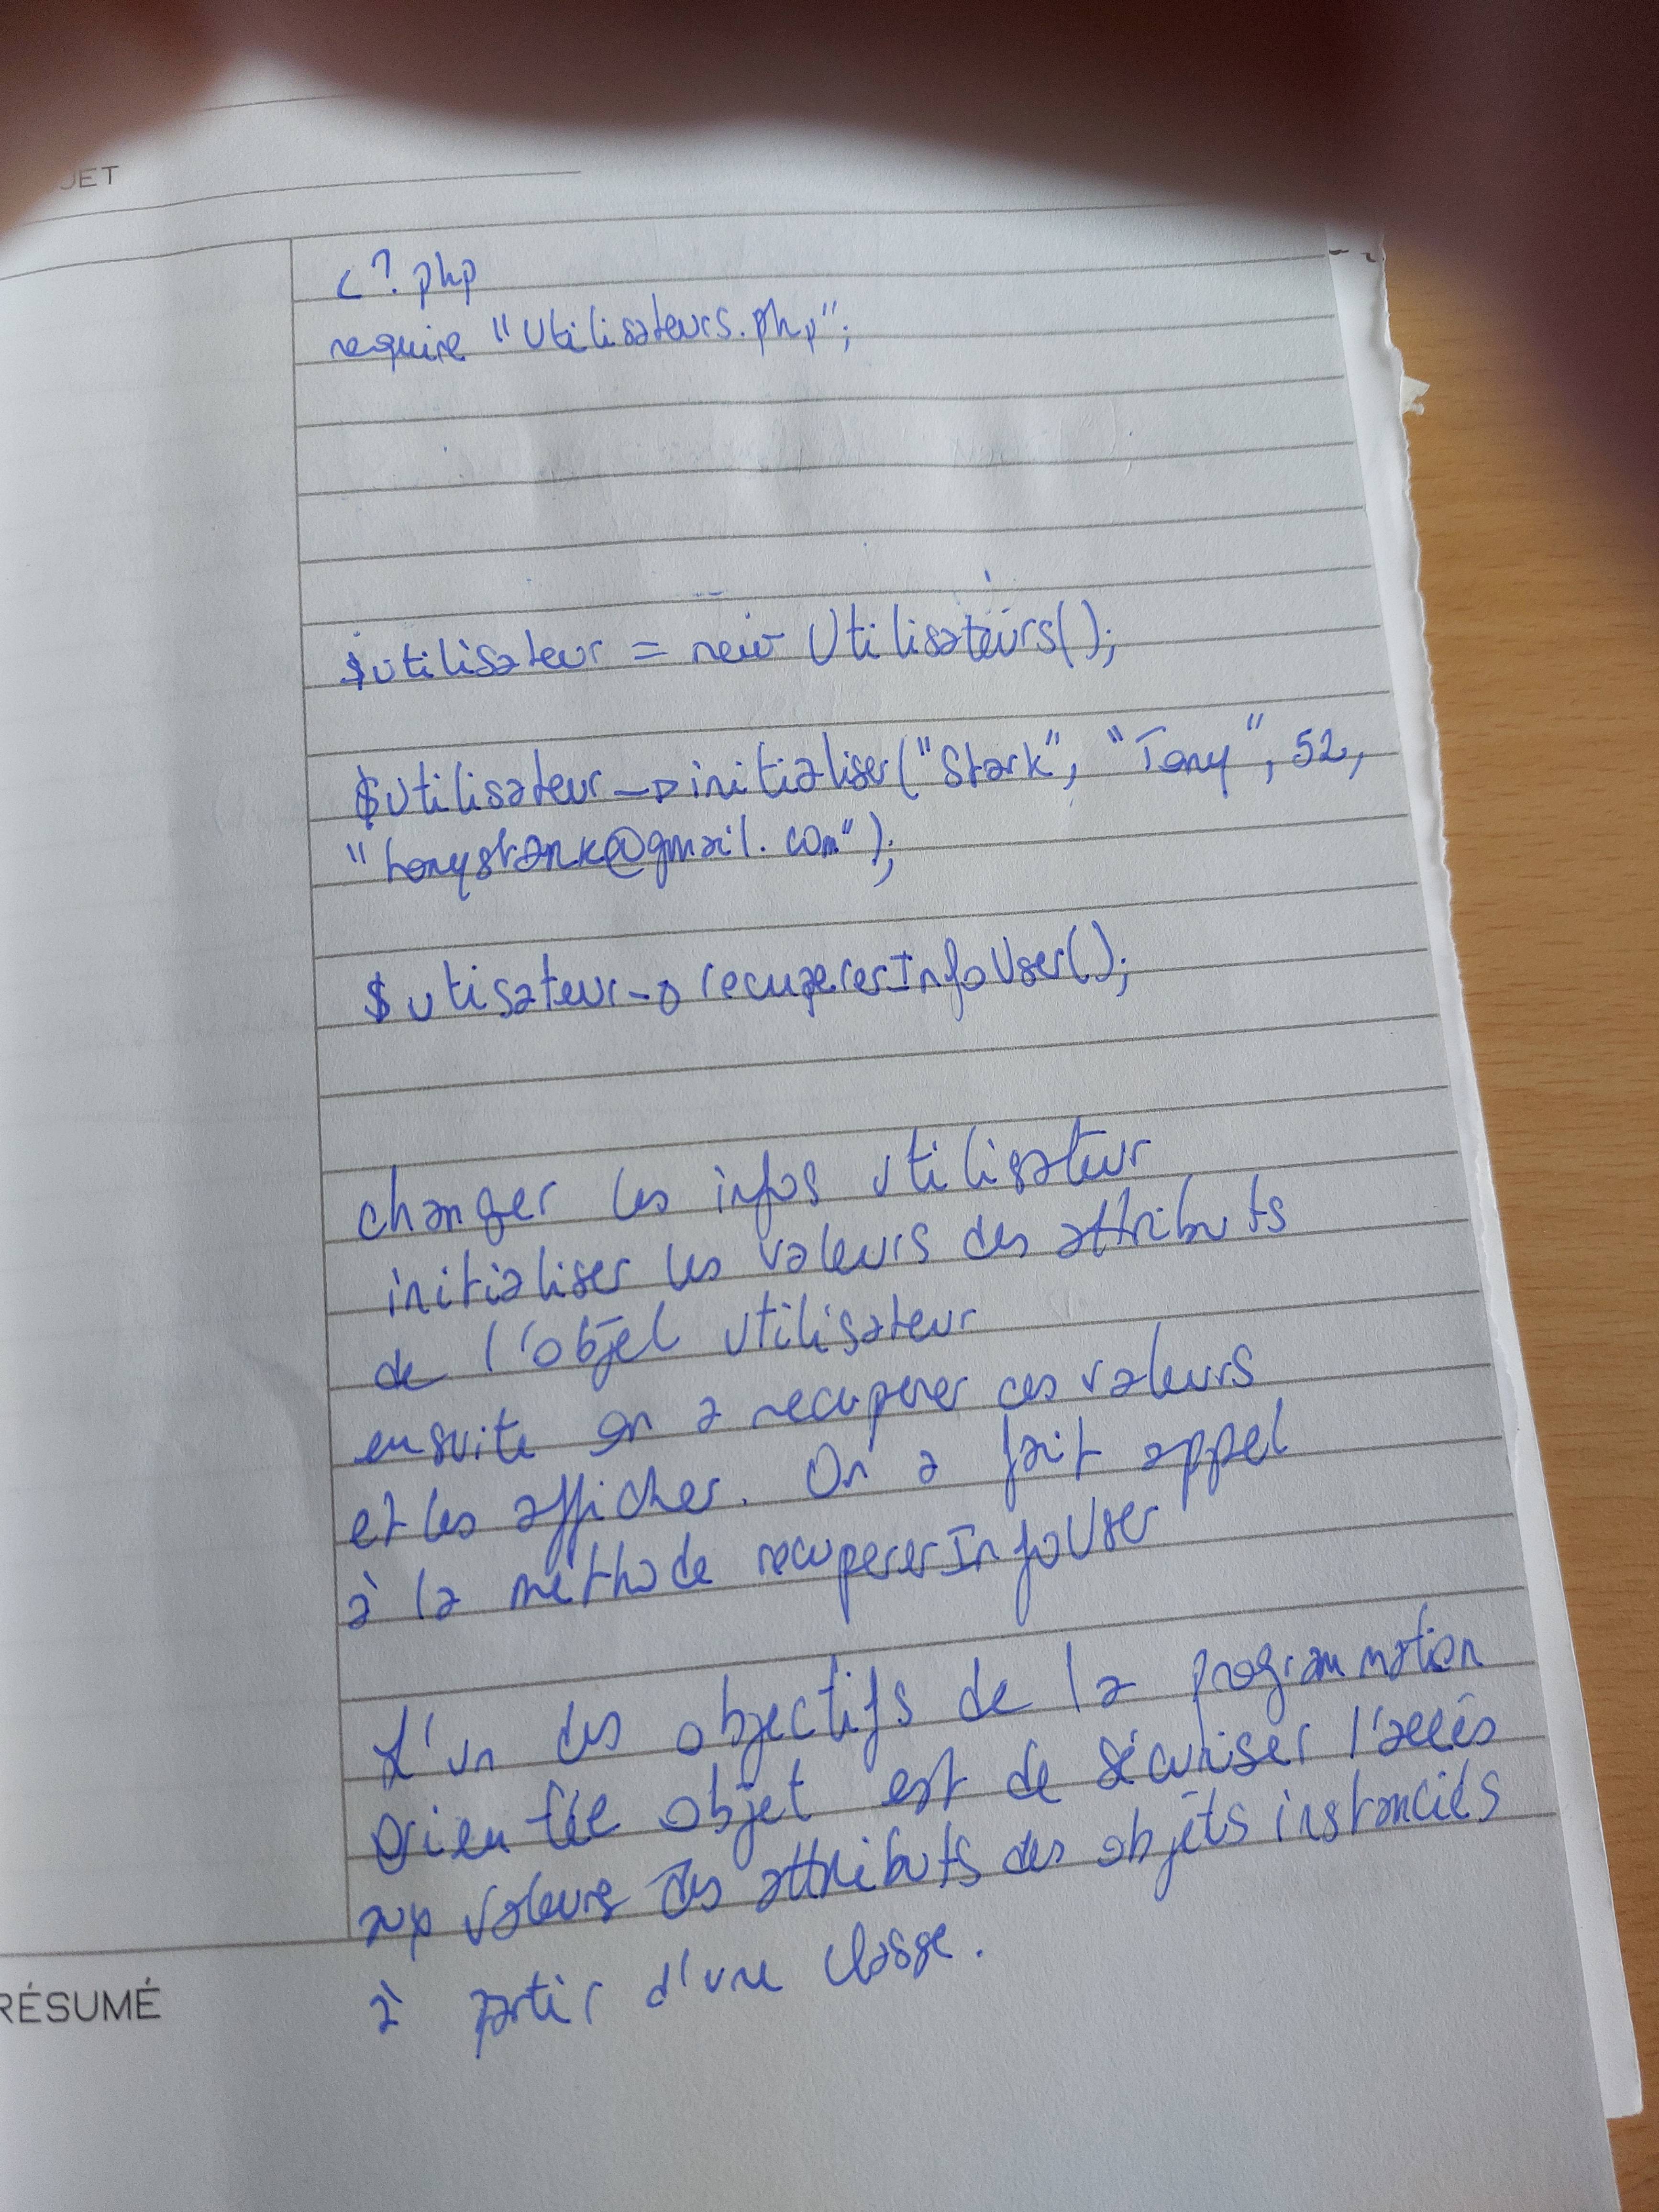 JET
<?php
require "Utilisateurs.php";
$utilisateur = new Utilisateurs();
$utilisateur->initialiser("Stark", "Tony", 52,
"tonystark@gmail.com");
$utisateur->recupererInfoUser();
changer les infos utilisateur
initialiser les valeurs des attributs
de l'objet utilisateur
ensuite on a recuperer ces valeurs
et les afficher. On a fait appel
à la méthode recupererInfoUser
L'un des objectifs de la programmation
orientée objet est de sécuriser l'accès
aux valeurs des attributs des objets instanciés
à partir d'une classe.
RÉSUMÉ